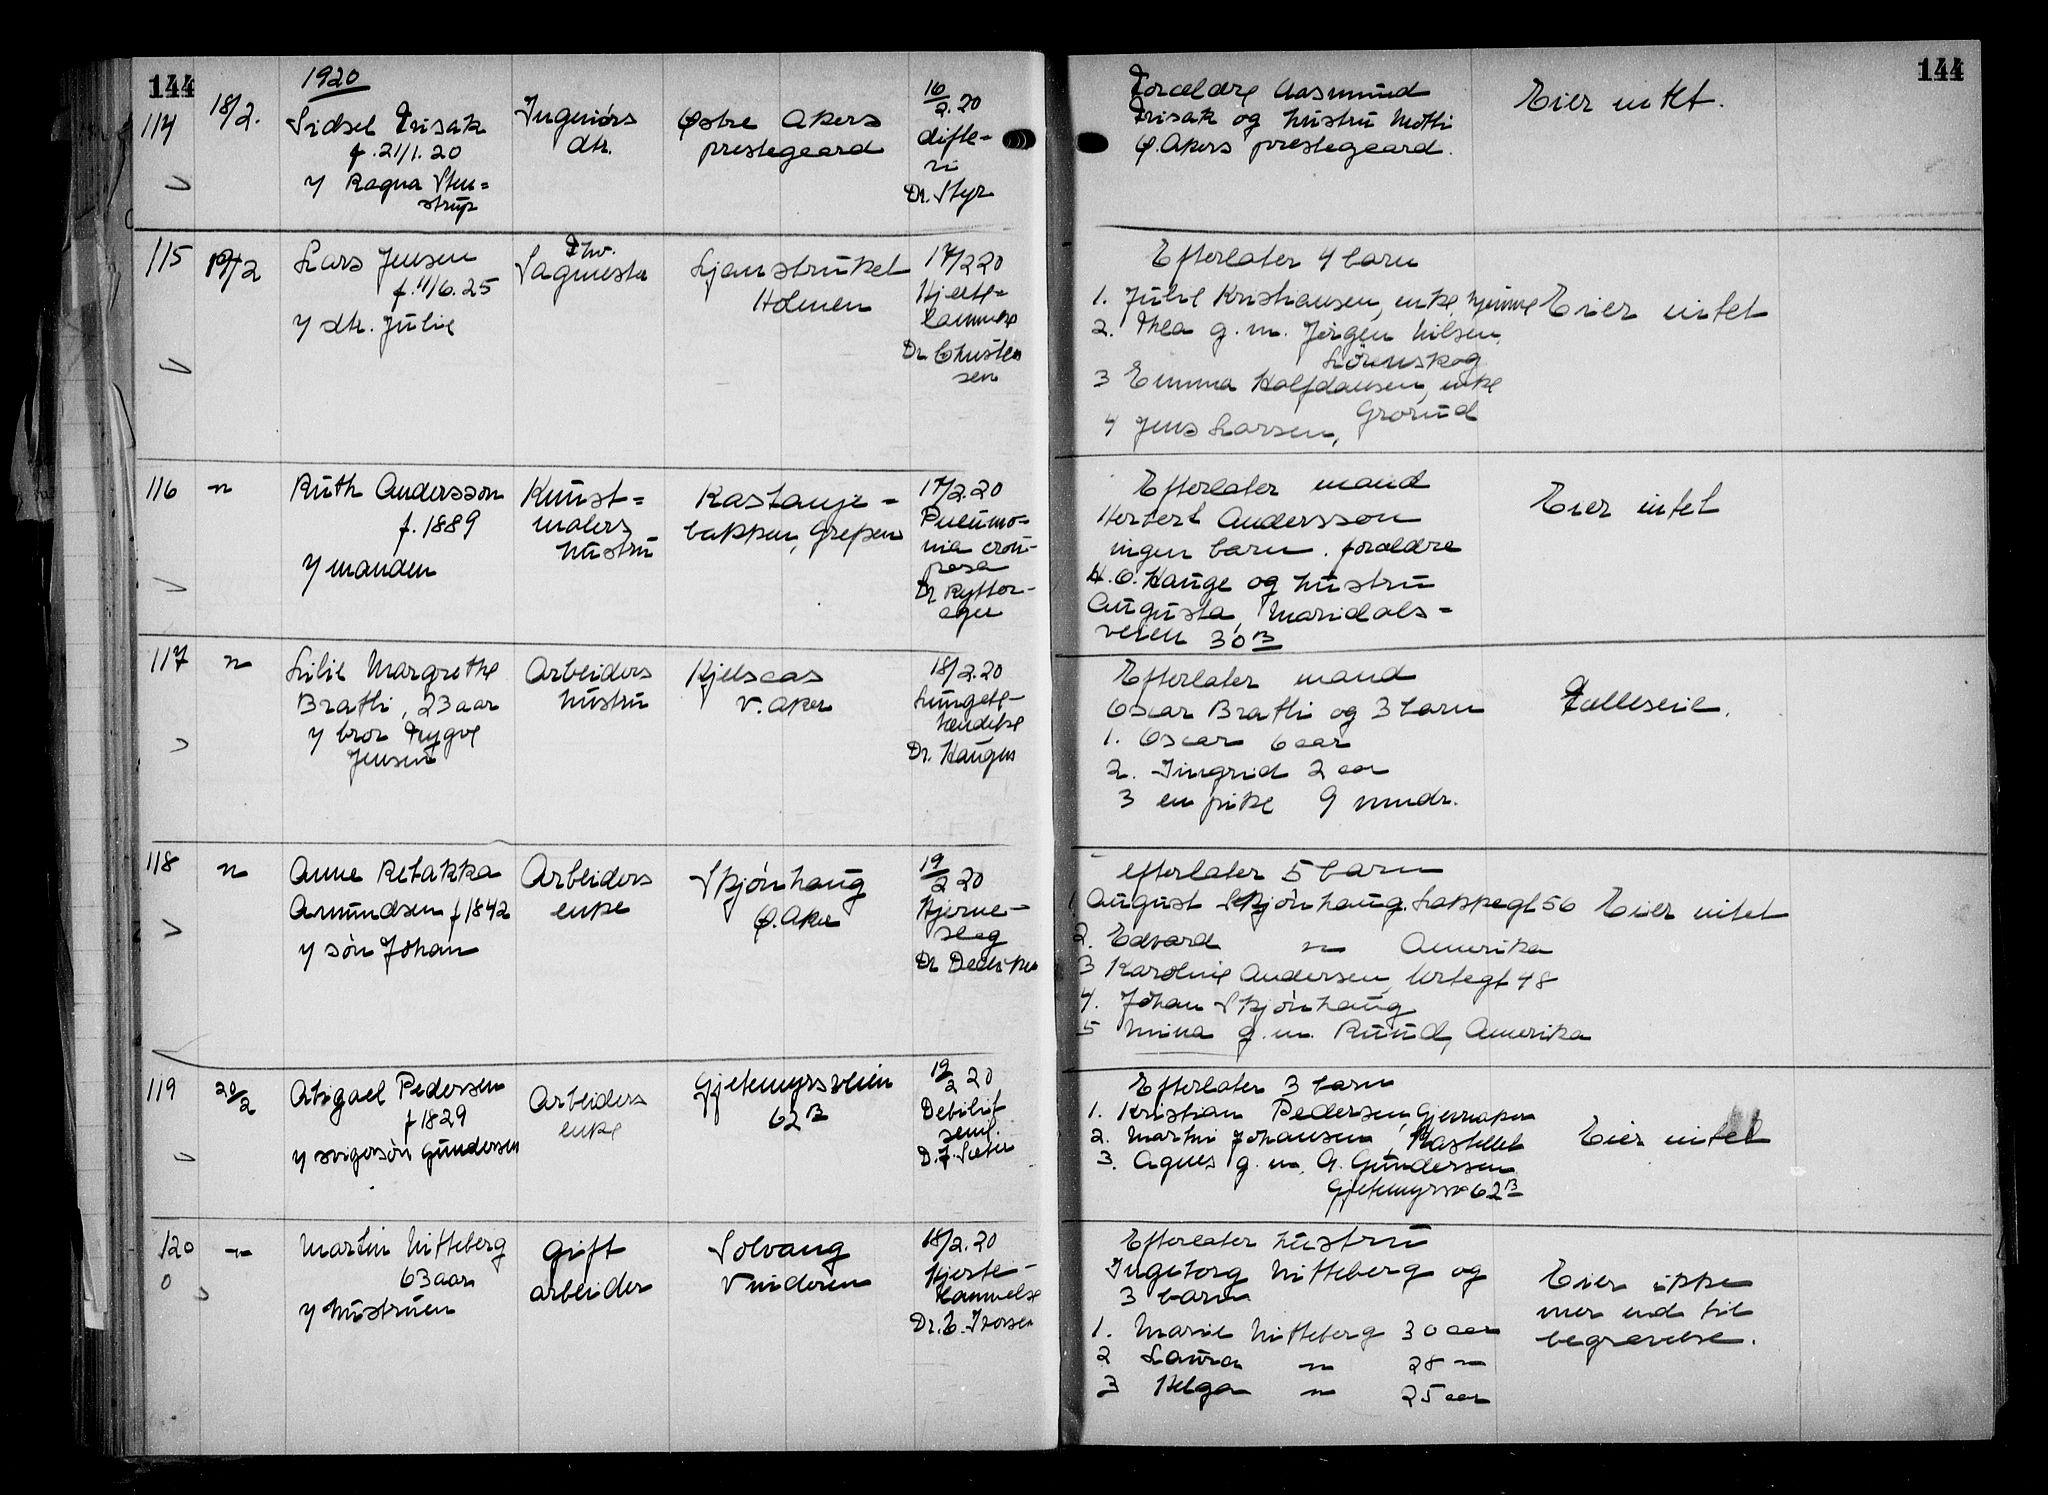 144
1920
114
18/2.
Sidsel Frisak
f. 21/1. 20
y Ragna Sten=
strup
Ingeniørs
dtr.
Østre Akers
prestegaard
16/2.20
difte-
ri
Dr. Styr
144
Forældre Aasmund
Frisak og hustru Motti
Ø. Akers prestegaard.
Eier intet.
115
19/2
Lars Jensen
f. 11/6. 25
y dtr. Julie
Fhv.
Sagmester
Ljanstruket
Holmen
17/2 20
Hjerte-
lammelse
Dr. Christen
sen
Efterlater 4 barn
1. Julie Kristiansen, enke, hjemme
2. Thea g. m. Jørgen Nilsen,
Lørenskog
3 Emma Halfdansen, enke
Grorud
4 Jens Larsen,
Eier intet
116
"
Ruth Andersson
f. 1889
y manden
Kunst=
malers
hustru
Kastanje-
bakken, Grefsen
17/2.20
Pneumo-
nia crou-
posa
Dr Rytter-
ager
Efterlater mand
Herbert Andersson
ingen barn. forældre
H. O. Hauge og hustru
Augusta, Maridals-
veien 30 B
Eier intet
117
"
Lilie Margrethe
Bratli, 23 aar
y bror Trygve
Jensen
Arbeiders
hustru
Kjelsaas
V. Aker
18/2.20
Lungebe-
tændelse
Dr. Haugen
Efterlater mand
Oscar Bratli og 3 barn
1. Oscar 6 aar
2. Ingrid 2 aar
3 en pike 9 mndr.
Fælleseie.
118
"
Anne Rebakka
Amundsen f 1842
y søn Johan
Arbeiders
enke
Skjønhaug
Ø. Aker
19/2 20
Hjerne-
slag
Dr Dedichen
efterlater 5 barn
1 August Skjønhaug. Lakkegt 56
2. Edvard " Amerika
3 Karoline Andersen, Urtegt 48
4. Johan Skjønhaug
5 Mina g. m. Ruud, Amerika
Eier intet
119
20/2
Abigael Pedersen
f 1829
y svigersøn Gundersen
Arbeiders
enke
Gjetemyrsveien
62 B
19/2 20
Debilit
senil.
D. J. Sæter
Efterlater 3 barn
1. Kristian Pedersen,
2. Martin Johansen, Kastellet
3. Agnes g. m. A. Gundersen
Gjetemyrsv 62 B
Eier intet
120
0
"
Martin Nitteberg
63 aar
y hustruen
gift
arbeider
Solvang
Vinderen
18/2.20
Hjerte-
lammelse
Dr. E. Thorsen
Efterlater hustru
Ingeborg Nitteberg og
3 barn
1. Marie Nitteberg 30 aar
2 Laura " 28 "
3 Helga " 25 aar
Eier ikke
mer end til
begravelse.